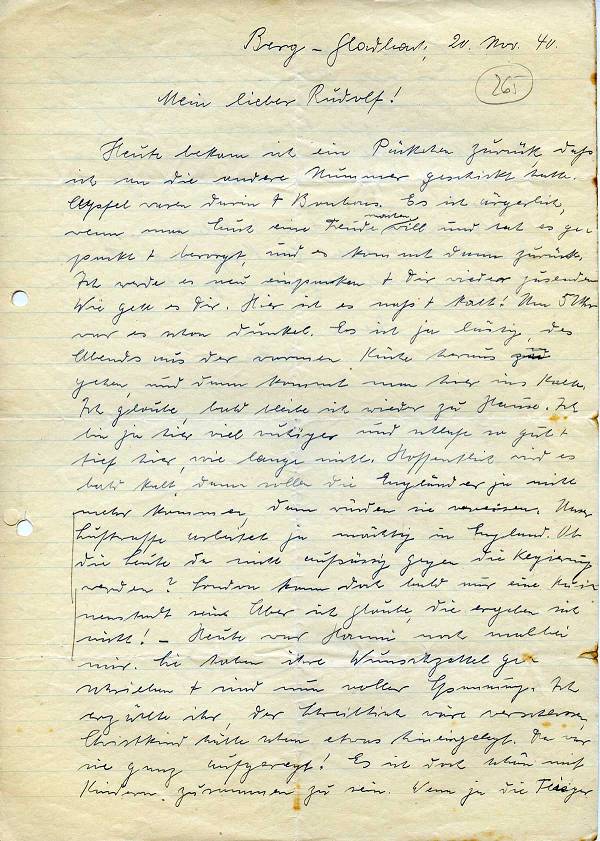 Berg-Gladbach, 20. Nov. 40.
265
Mein lieber Rudolf!
Heute bekam ich ein Päckchen zurück, daß
ich an die andere Nummer geschickt hatte.
Äpfel waren darin + Bonbons. Es ist ärgerlich,
wenn man Euch eine Freude machen will und hat es ge-
packt + besorgt, und es kommt dann zurück.
Ich werde es neu einpacken + Dir wieder zusenden
Wie geht es Dir. Hier ist es naß + kalt! Um 5 Uhr
war es schon dunkel. Es ist ja lästig, des
Abends aus der warmen Küche heraus zu
gehen, und dann kommt man hier ins Kalte.
Ich glaube, bald bleibe ich wieder zu Hause. Ich
bin ja hier viel ruhiger und schlafe so gut +
tief hier, wie lange nicht. Hoffentlich wird es
bald kalt, dann sollen die Engländer ja nicht
mehr kommen, dann würden sie vereisen. Unsere
Luftwaffe arbeitet ja mächtig in England. Ob
die Leute da nicht aufsässig gegen die Regierung
werden? London kann doch bald nur eine Rui-
nenstadt sein. Aber ich glaube, die ergeben sich
nicht! – Heute war Hanni noch mal bei
mir. Sie haben ihre Wunschzettel ge-
schrieben + sind nun voller Spannung. Ich
erzählte ihr, der Schreibtisch wäre verschlossen,
Christkind hätte schon etwas hineingelegt. Da war
sie ganz aufgeregt! Es ist doch schön mit
Kindern zusammen zu sein. Wenn ja die